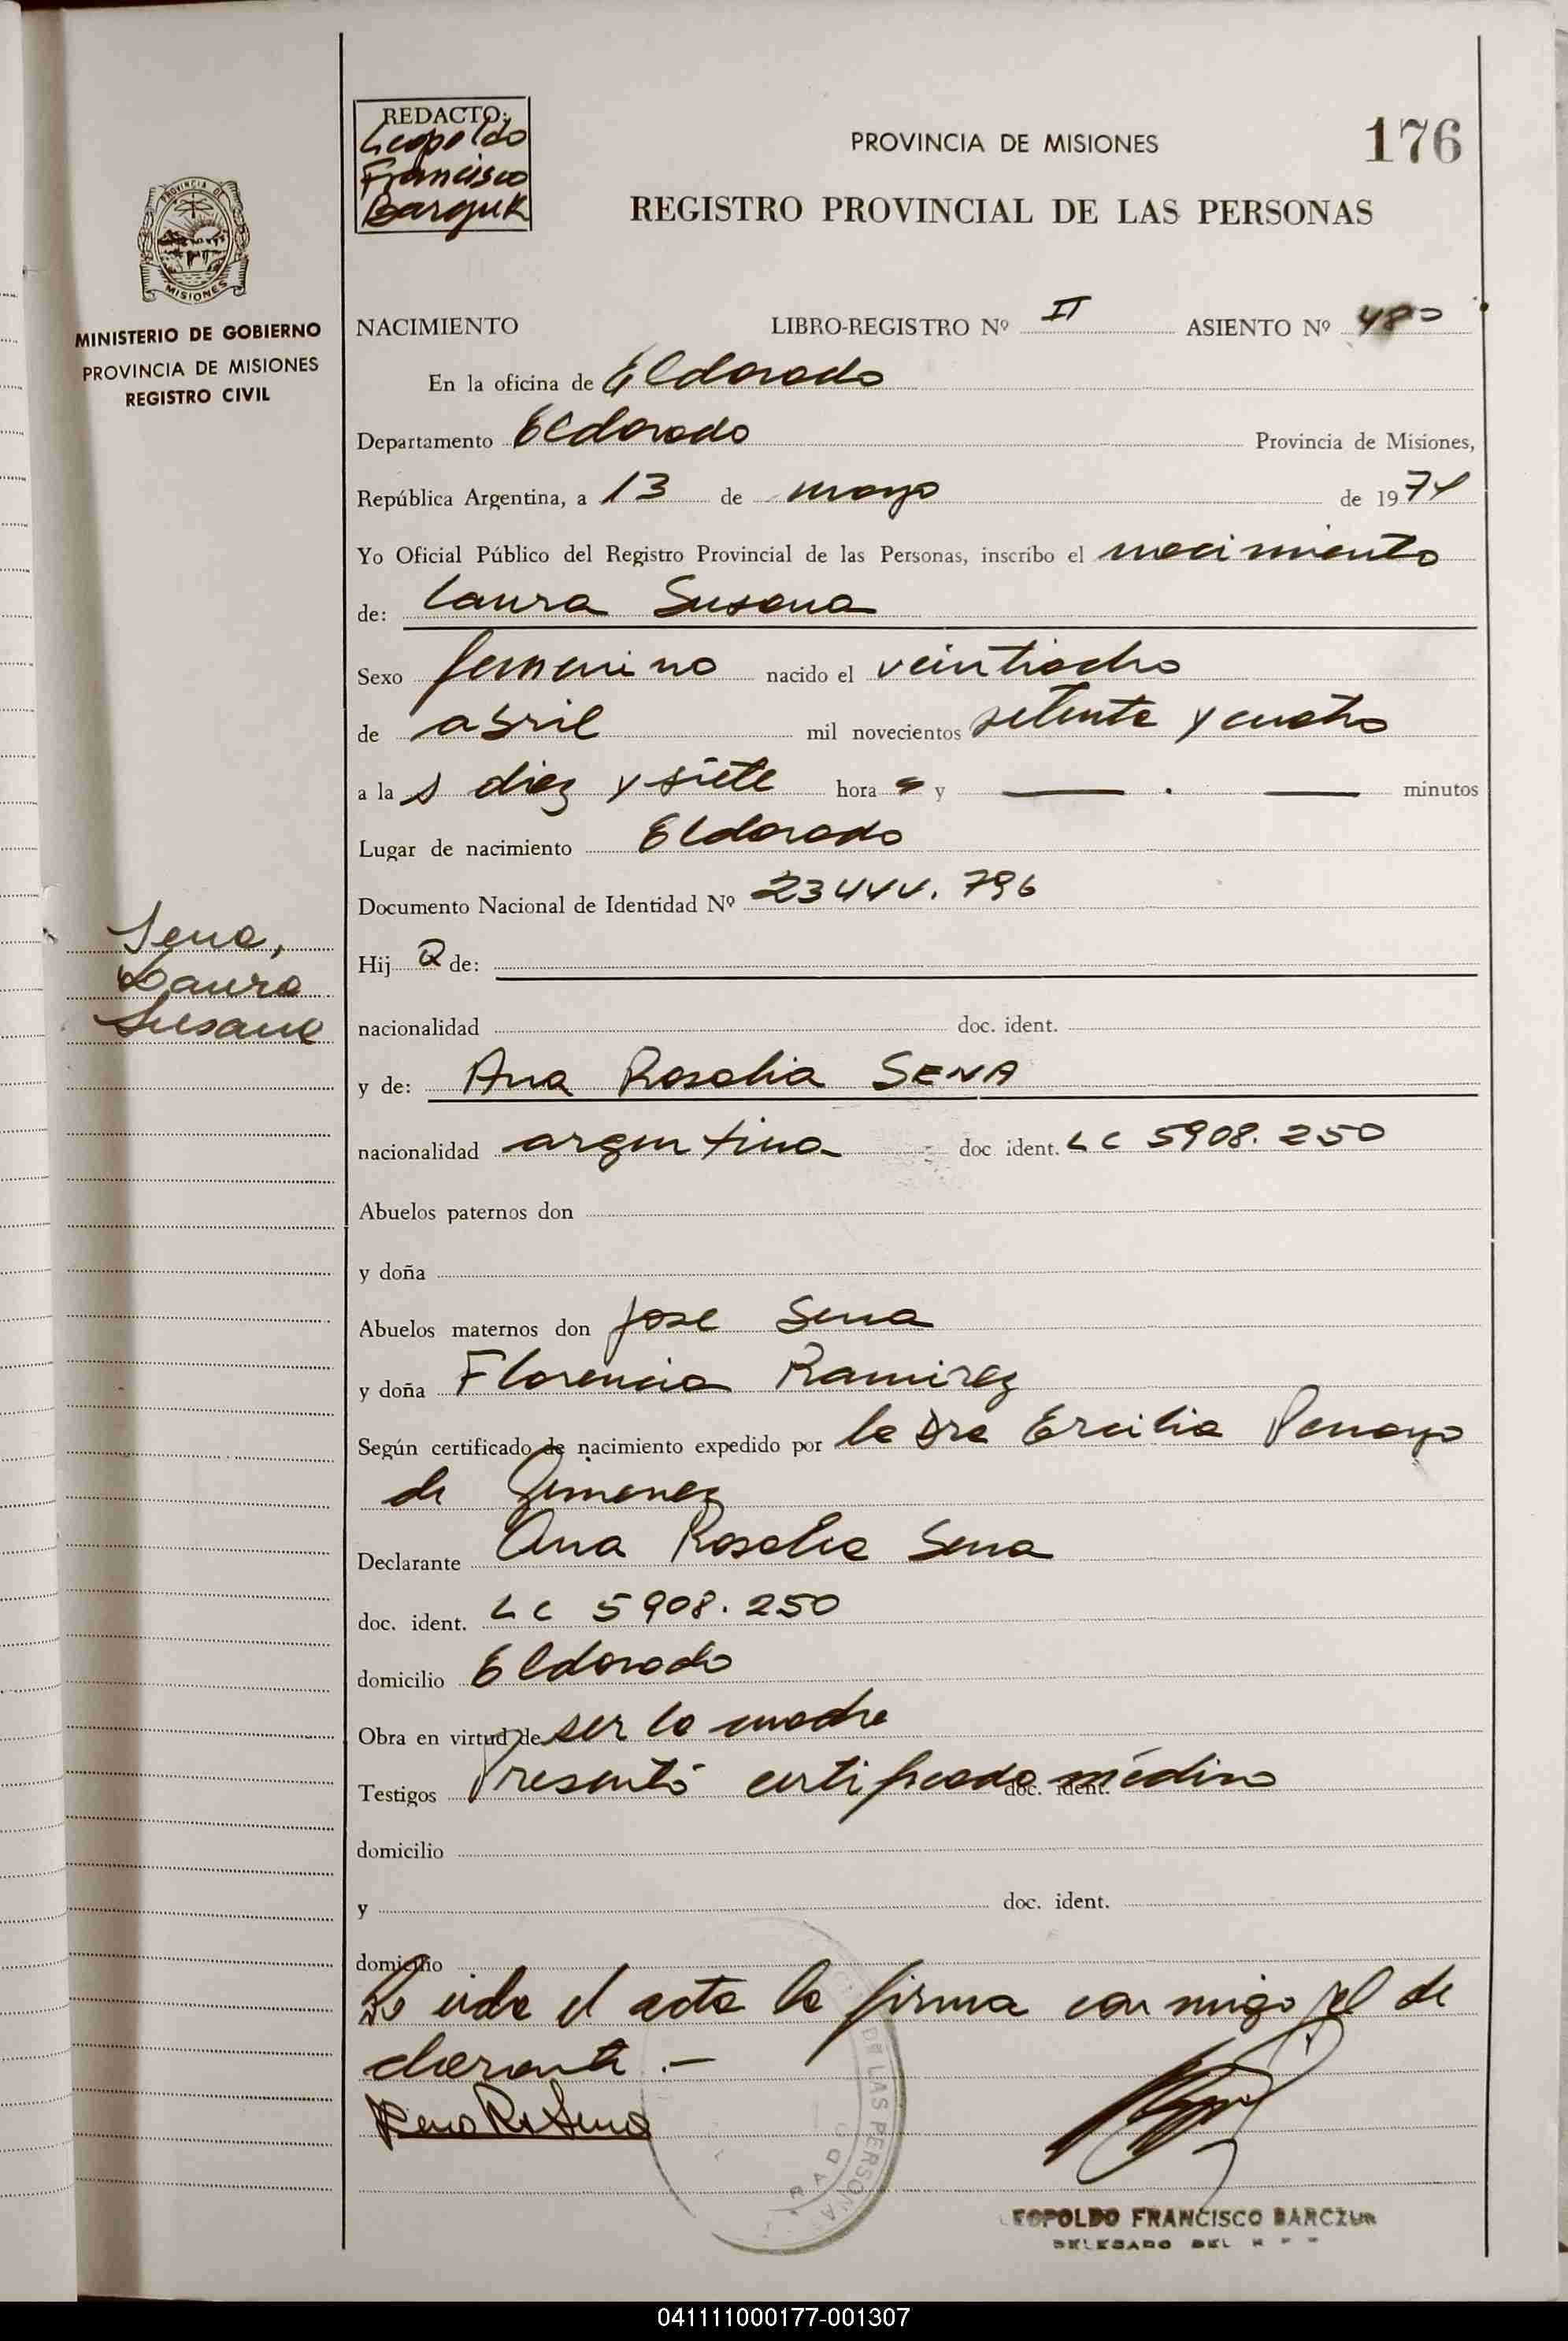 REDACTO:
Leopoldo
Francisco
PROVINCIA DE MISIONES
176
REGISTRO PROVINCIAL DE LAS PERSONAS
PROVINCIA DE
MISIONES
MINISTERIO DE GOBIERNO
PROVINCIA DE MISIONES
REGISTRO CIVIL
NACIMIENTO LIBRO-REGISTRO Nº II ASIENTO Nº 480
En la oficina de Eldorado
Departamento Eldorado Provincia de Misiones,
República Argentina, a 13 de mayo de 1974
Yo Oficial Público del Registro Provincial de las Personas, inscribo el nacimiento
de: Laura Susana
Sexo femenino nacido el veintiocho
de abril mil novecientos setenta y cuatro
a la s diez y siete hora s y — . — minutos
Lugar de nacimiento Eldorado
Documento Nacional de Identidad Nº 23444.796
Sena,
Laura
Susana
Hij a de:
nacionalidad doc. ident.
y de: Ana Rosalia SENA
nacionalidad argentina doc ident. LC 5908.250
Abuelos paternos don
y doña
Abuelos maternos don Jose Sena
y doña Florencia Ramirez
Según certificado de nacimiento expedido por la Dra Ercilia Penayo
de Gimenez
Declarante Ana Rosalia Sena
doc. ident. LC 5908.250
domicilio Eldorado
Obra en virtud de ser la madre
Testigos Presentó certificado médico doc. ident.
domicilio
y doc. ident.
domicilio
Leida el acta la firma conmigo el de
clarante .—
DE LAS PERSONAS
LEOPOLDO FRANCISCO BARCZUK
DELEGADO DEL R P P
041111000177-001307